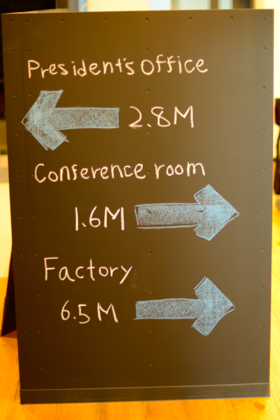 President's Office
2.8M
Conference room
1.6M
Factory
6.5M